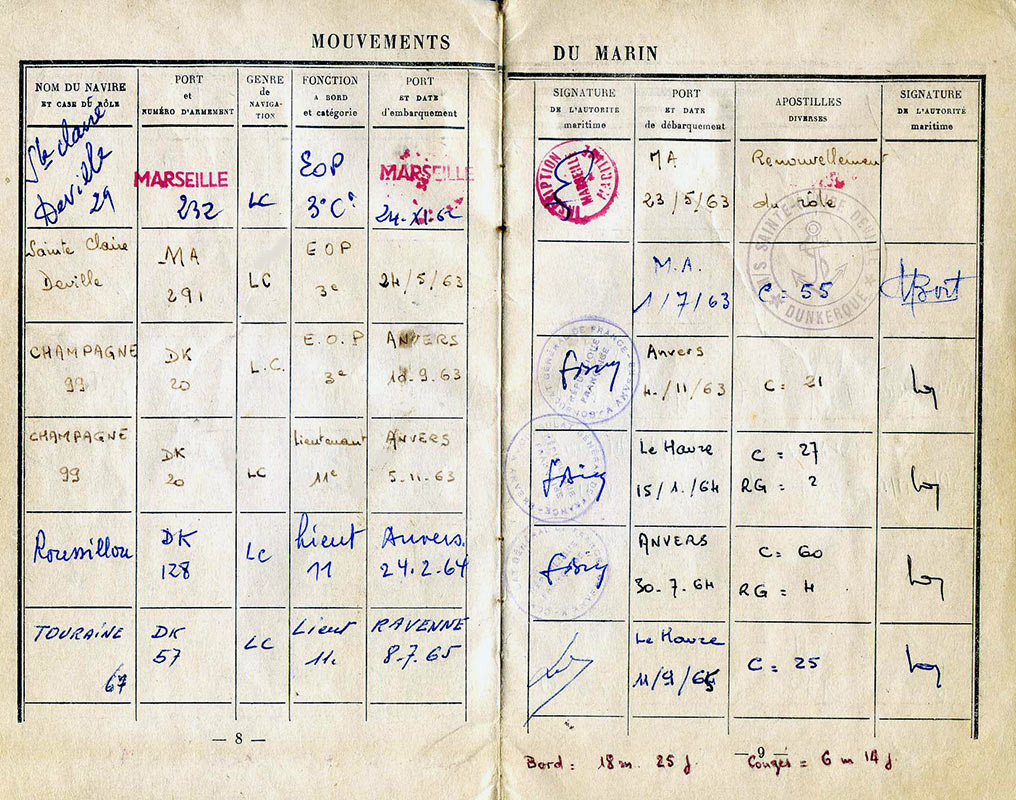 MOUVEMENTS DU MARIN
NOM DU NAVIRE
ET CASE DU RÔLE
PORT
et
NUMÉRO D'ARMEMENT
GENRE
de
NAVIGA-
TION
FONCTION
A BORD
et catégorie
PORT
ET DATE
d'embarquement
SIGNATURE
DE L'AUTORITÉ
maritime
PORT
ET DATE
de débarquement
APOSTILLES
DIVERSES
SIGNATURE
DE L'AUTORITÉ
maritime
Ste Claire
Deville
29
MARSEILLE
232
LC
EOP
3e C
MARSEILLE
24-XI-62
MARSEILLE
MA
23/5/63
Renouvellement
du rôle
Sainte Claire
Deville
MA
291
LC
EOP
3e
24/5/63
M.A.
1/7/63
C = 55
DUNKERQUE
CHAMPAGNE
99
DK
20
L.C.
E.O.P
3e
ANVERS
10.9.63
CONSULAT GÉNÉRAL DE FRANCE
RÉPUBLIQUE
FRANÇAISE
Anvers
4/11/63
C = 21
CHAMPAGNE
99
DK
20
LC
Lieutenant
11e
ANVERS
5.11.63
Le Havre
15/1/64
C = 27
RG = 2
Roussillon
DK
128
LC
Lieut
11
Anvers
24.2.64
ANVERS
30.7.64
C = 60
RG = 4
TOURAINE
67
DK
57
LC
Lieut
11.
RAVENNE
8.7.65
Le Havre
11/9/65
C = 25
— 8 —
— 9 —
Bord = 18 m. 25 j.
Congés = 6 m 14 j.